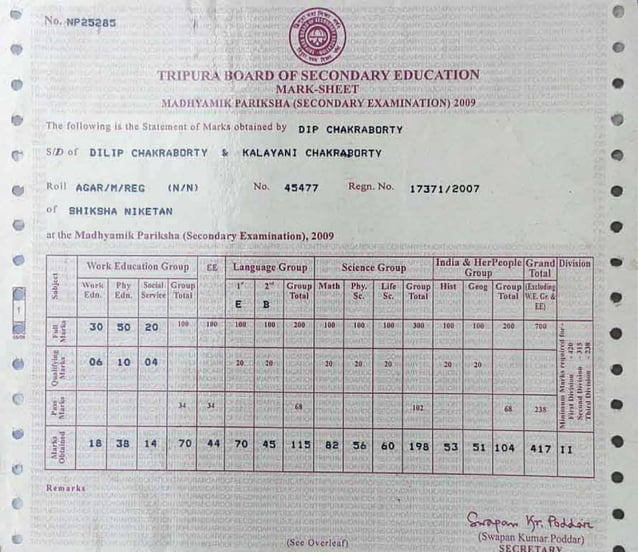 No. NP25285
TRIPURA BOARD OF SECONDARY EDUCATION
MARK-SHEET
MADHYAMIK PARIKSHA (SECONDARY EXAMINATION) 2009
The following is the Statement of Marks obtained by DIP CHAKRABORTY
S/D of DILIP CHAKRABORTY & KALAYANI CHAKRABORTY
Roll AGAR/M/REG (N/N) No. 45477 Regn. No. 17371/2007
of SHIKSHA NIKETAN
at the Madhyamik Pariksha (Secondary Examination), 2009
Subject Work Education Group EE Language Group Science Group India & HerPeople Group Grand Total Division
Work Edn. Phy Edn. Social Service Group Total 1st E 2nd B Group Total Math Phy. Sc. Life Sc. Group Total Hist Geog Group Total (Excluding W.E. Gr. & EE)
Full Marks 30 50 20 100 100 100 100 200 100 100 100 300 100 100 200 700
Qualifying Marks 06 10 04 20 20 20 20 20 20 20
Pass Marks 34 34 68 102 68 238
Minimum Marks required for -
First Division - 420
Second Division - 315
Third Division - 238
Marks Obtained 18 38 14 70 44 70 45 115 82 56 60 198 53 51 104 417 II
Remarks
Swapan Kr. Poddar
(Swapan Kumar Poddar)
(See Overleaf) SECRETARY